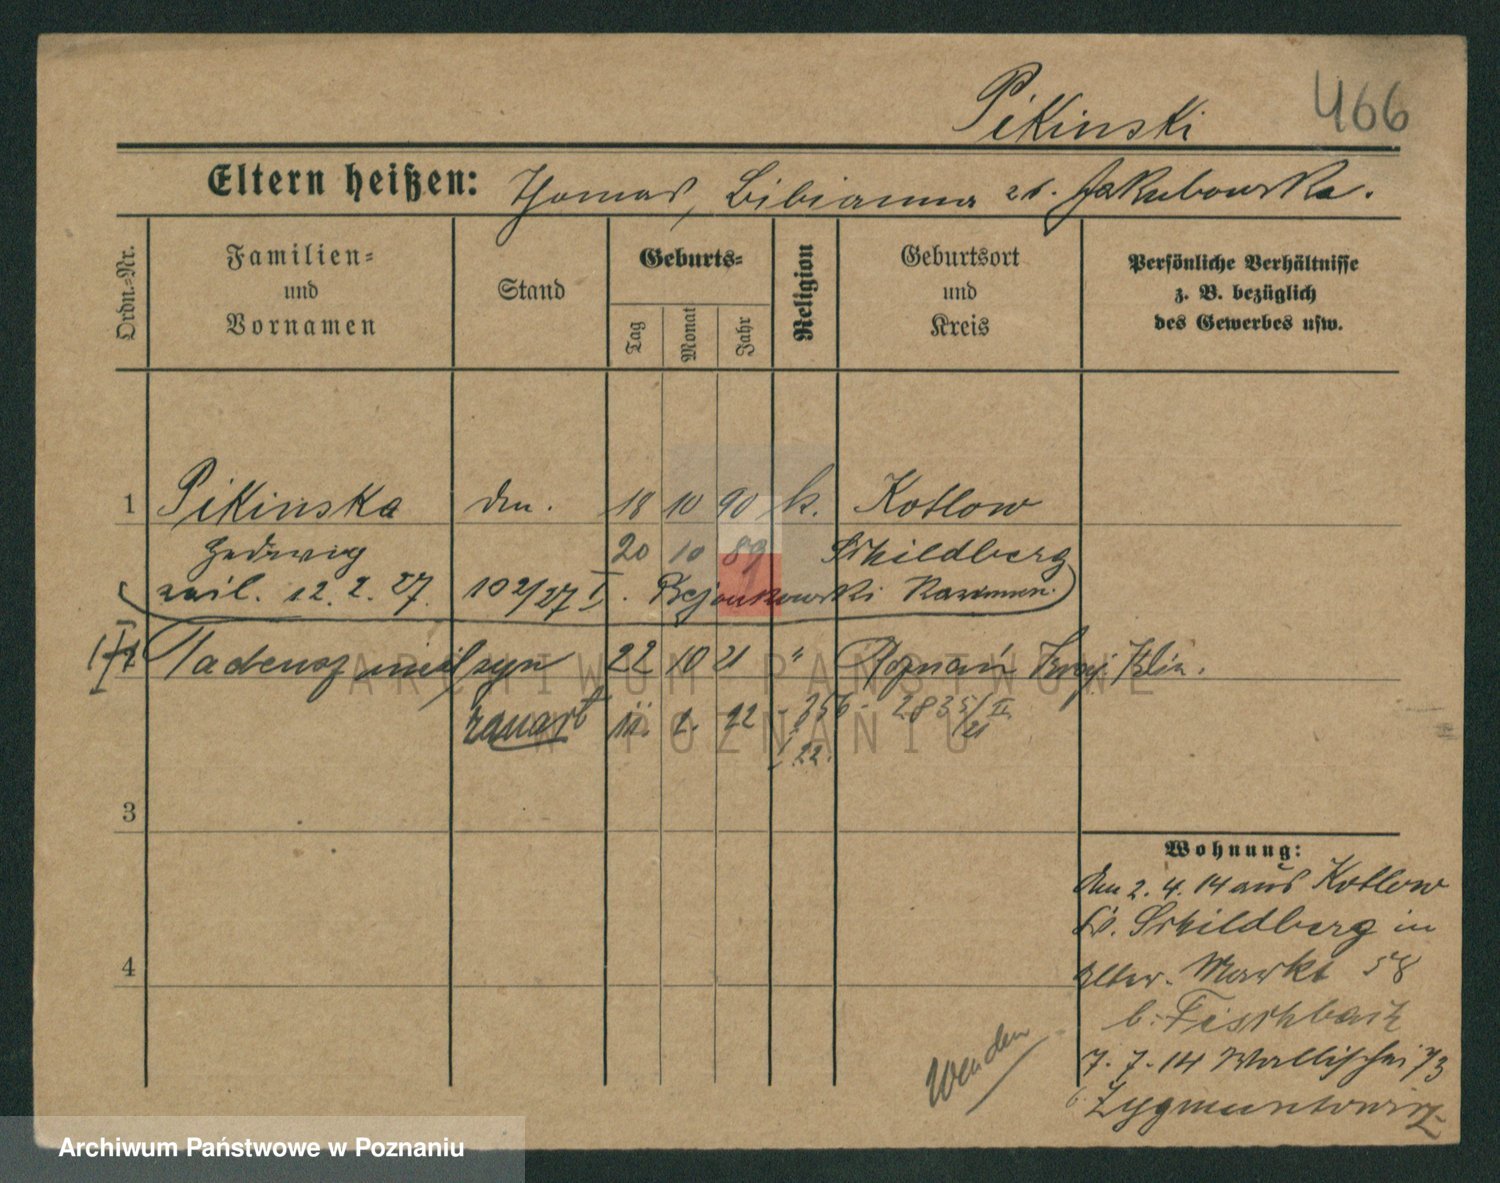 Pikinski 466
Eltern heißen: Thomas, Bibianna zd. Jakubowska.
Ordn.-Nr.
Familien- und Vornamen
Stand
Geburts-
Tag
Monat
Jahr
Religion
Geburtsort und Kreis
Persönliche Verhältnisse
z. B. bezüglich
des Gewerbes usw.
1 Pikinska 18 10 90 k. Kotlow
Hedwig 20 10 89 Schildberg
12. 2. 27. 102/27 I. Kazimierz.
Tadeusz syn 22 10 21 " Poznań
zmarł 11. 1. 22 - 356 - 283 5/21 II
1 22.
3
4
Wohnung:
den 2. 4. 14 aus Kotlow
Kr. Schildberg in
Alter. Markt 58
b. Fischbach
7. 7. 14 Wallischei 73
b. Zygmuntowicz
Wenden
ARCHIWUM PAŃSTWOWE
W POZNANIU
Archiwum Państwowe w Poznaniu